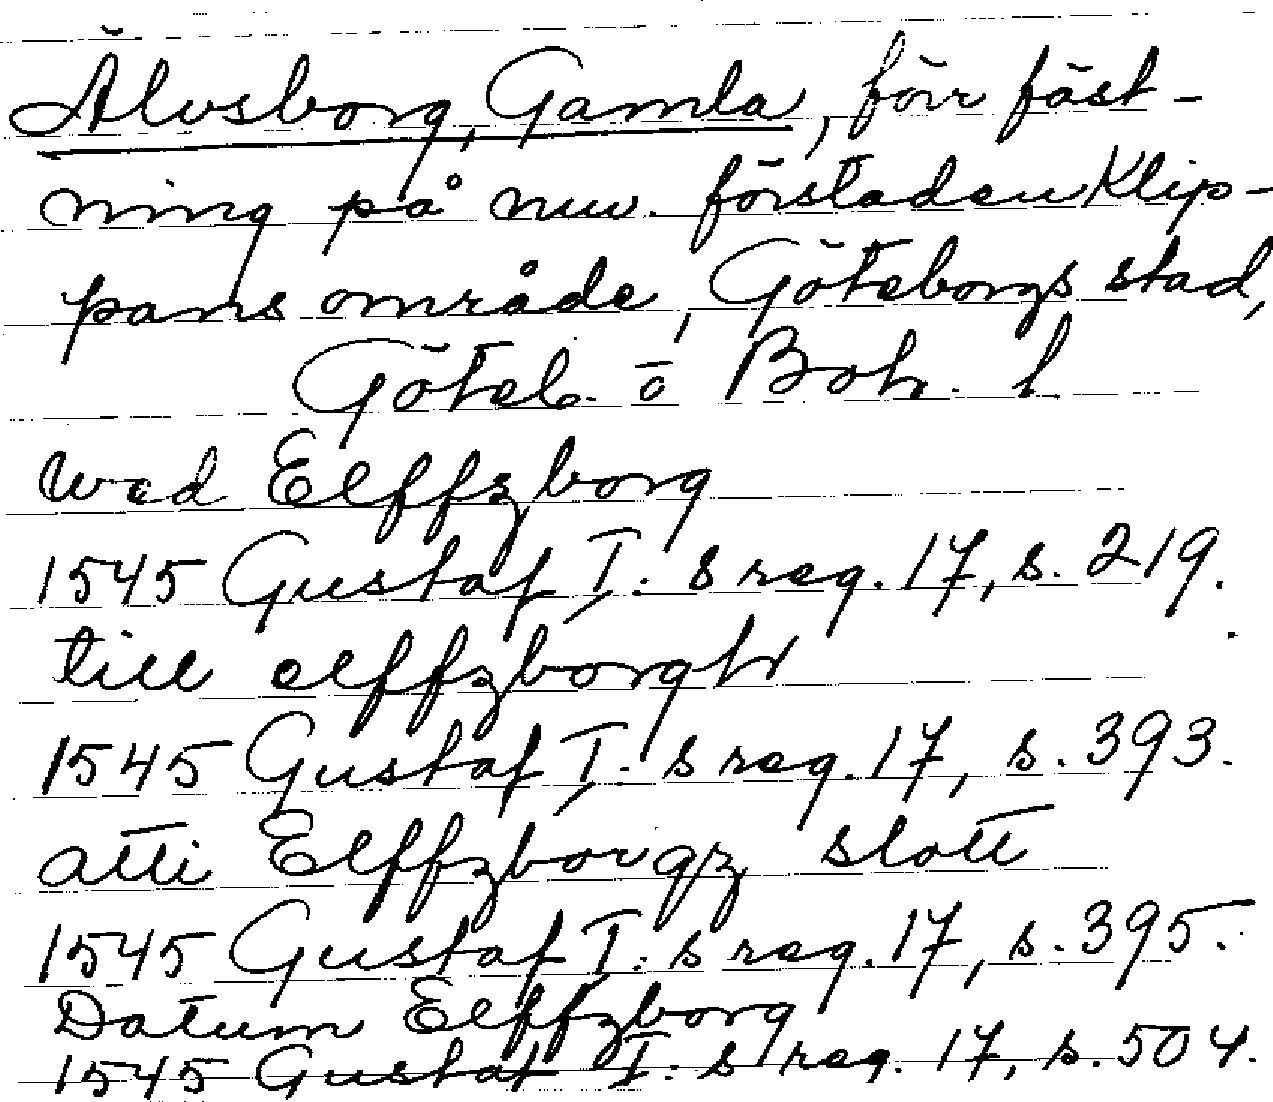 Älvsborg, Gamla, förr fäst-
ning på nuv. förstaden Klip-
pans område, Göteborgs stad,
Göteb. o Boh. l.
wed Elffzborg
1545 Gustaf I:s reg. 17, s. 219.
till elffzborgh
1545 Gustaf I:s reg. 17, s. 393.
atti Elffzborgz slott
1545 Gustaf I:s reg. 17, s. 395.
Datum Elffzborg
1545 Gustaf I:s reg. 17, s. 504.